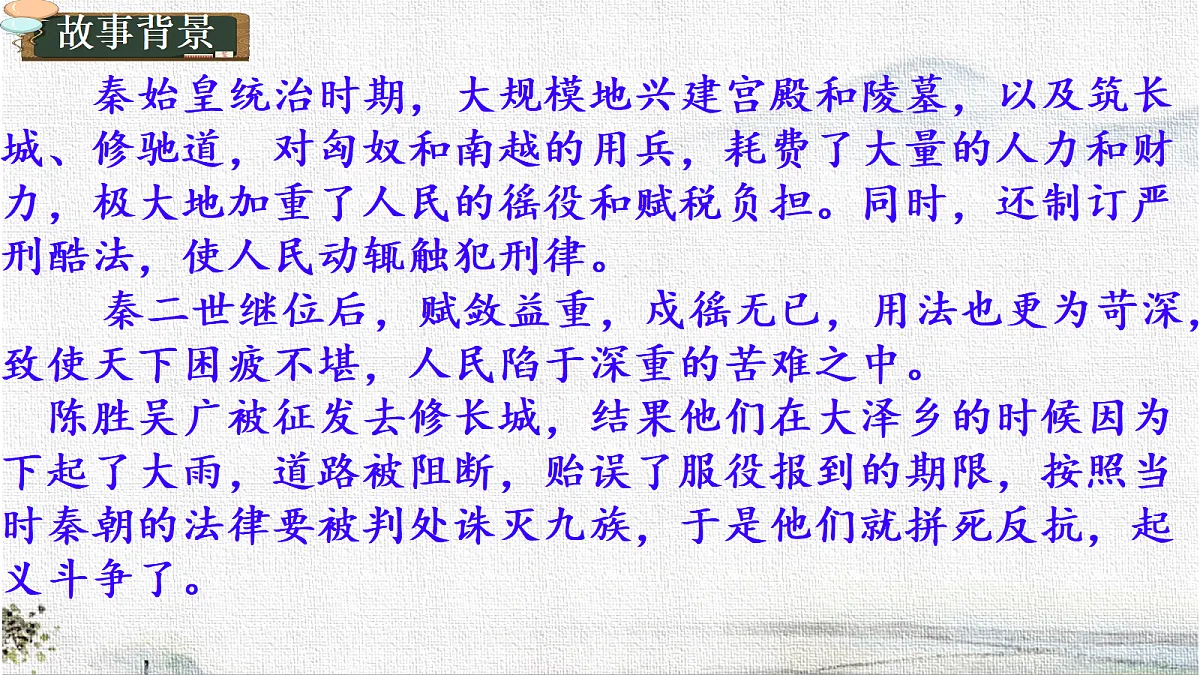 故事背景
秦始皇统治时期，大规模地兴建宫殿和陵墓，以及筑长
城、修驰道，对匈奴和南越的用兵，耗费了大量的人力和财
力，极大地加重了人民的徭役和赋税负担。同时，还制订严
刑酷法，使人民动辄触犯刑律。
秦二世继位后，赋敛益重，戍徭无已，用法也更为苛深，
致使天下困疲不堪，人民陷于深重的苦难之中。
陈胜吴广被征发去修长城，结果他们在大泽乡的时候因为
下起了大雨，道路被阻断，贻误了服役报到的期限，按照当
时秦朝的法律要被判处诛灭九族，于是他们就拼死反抗，起
义斗争了。